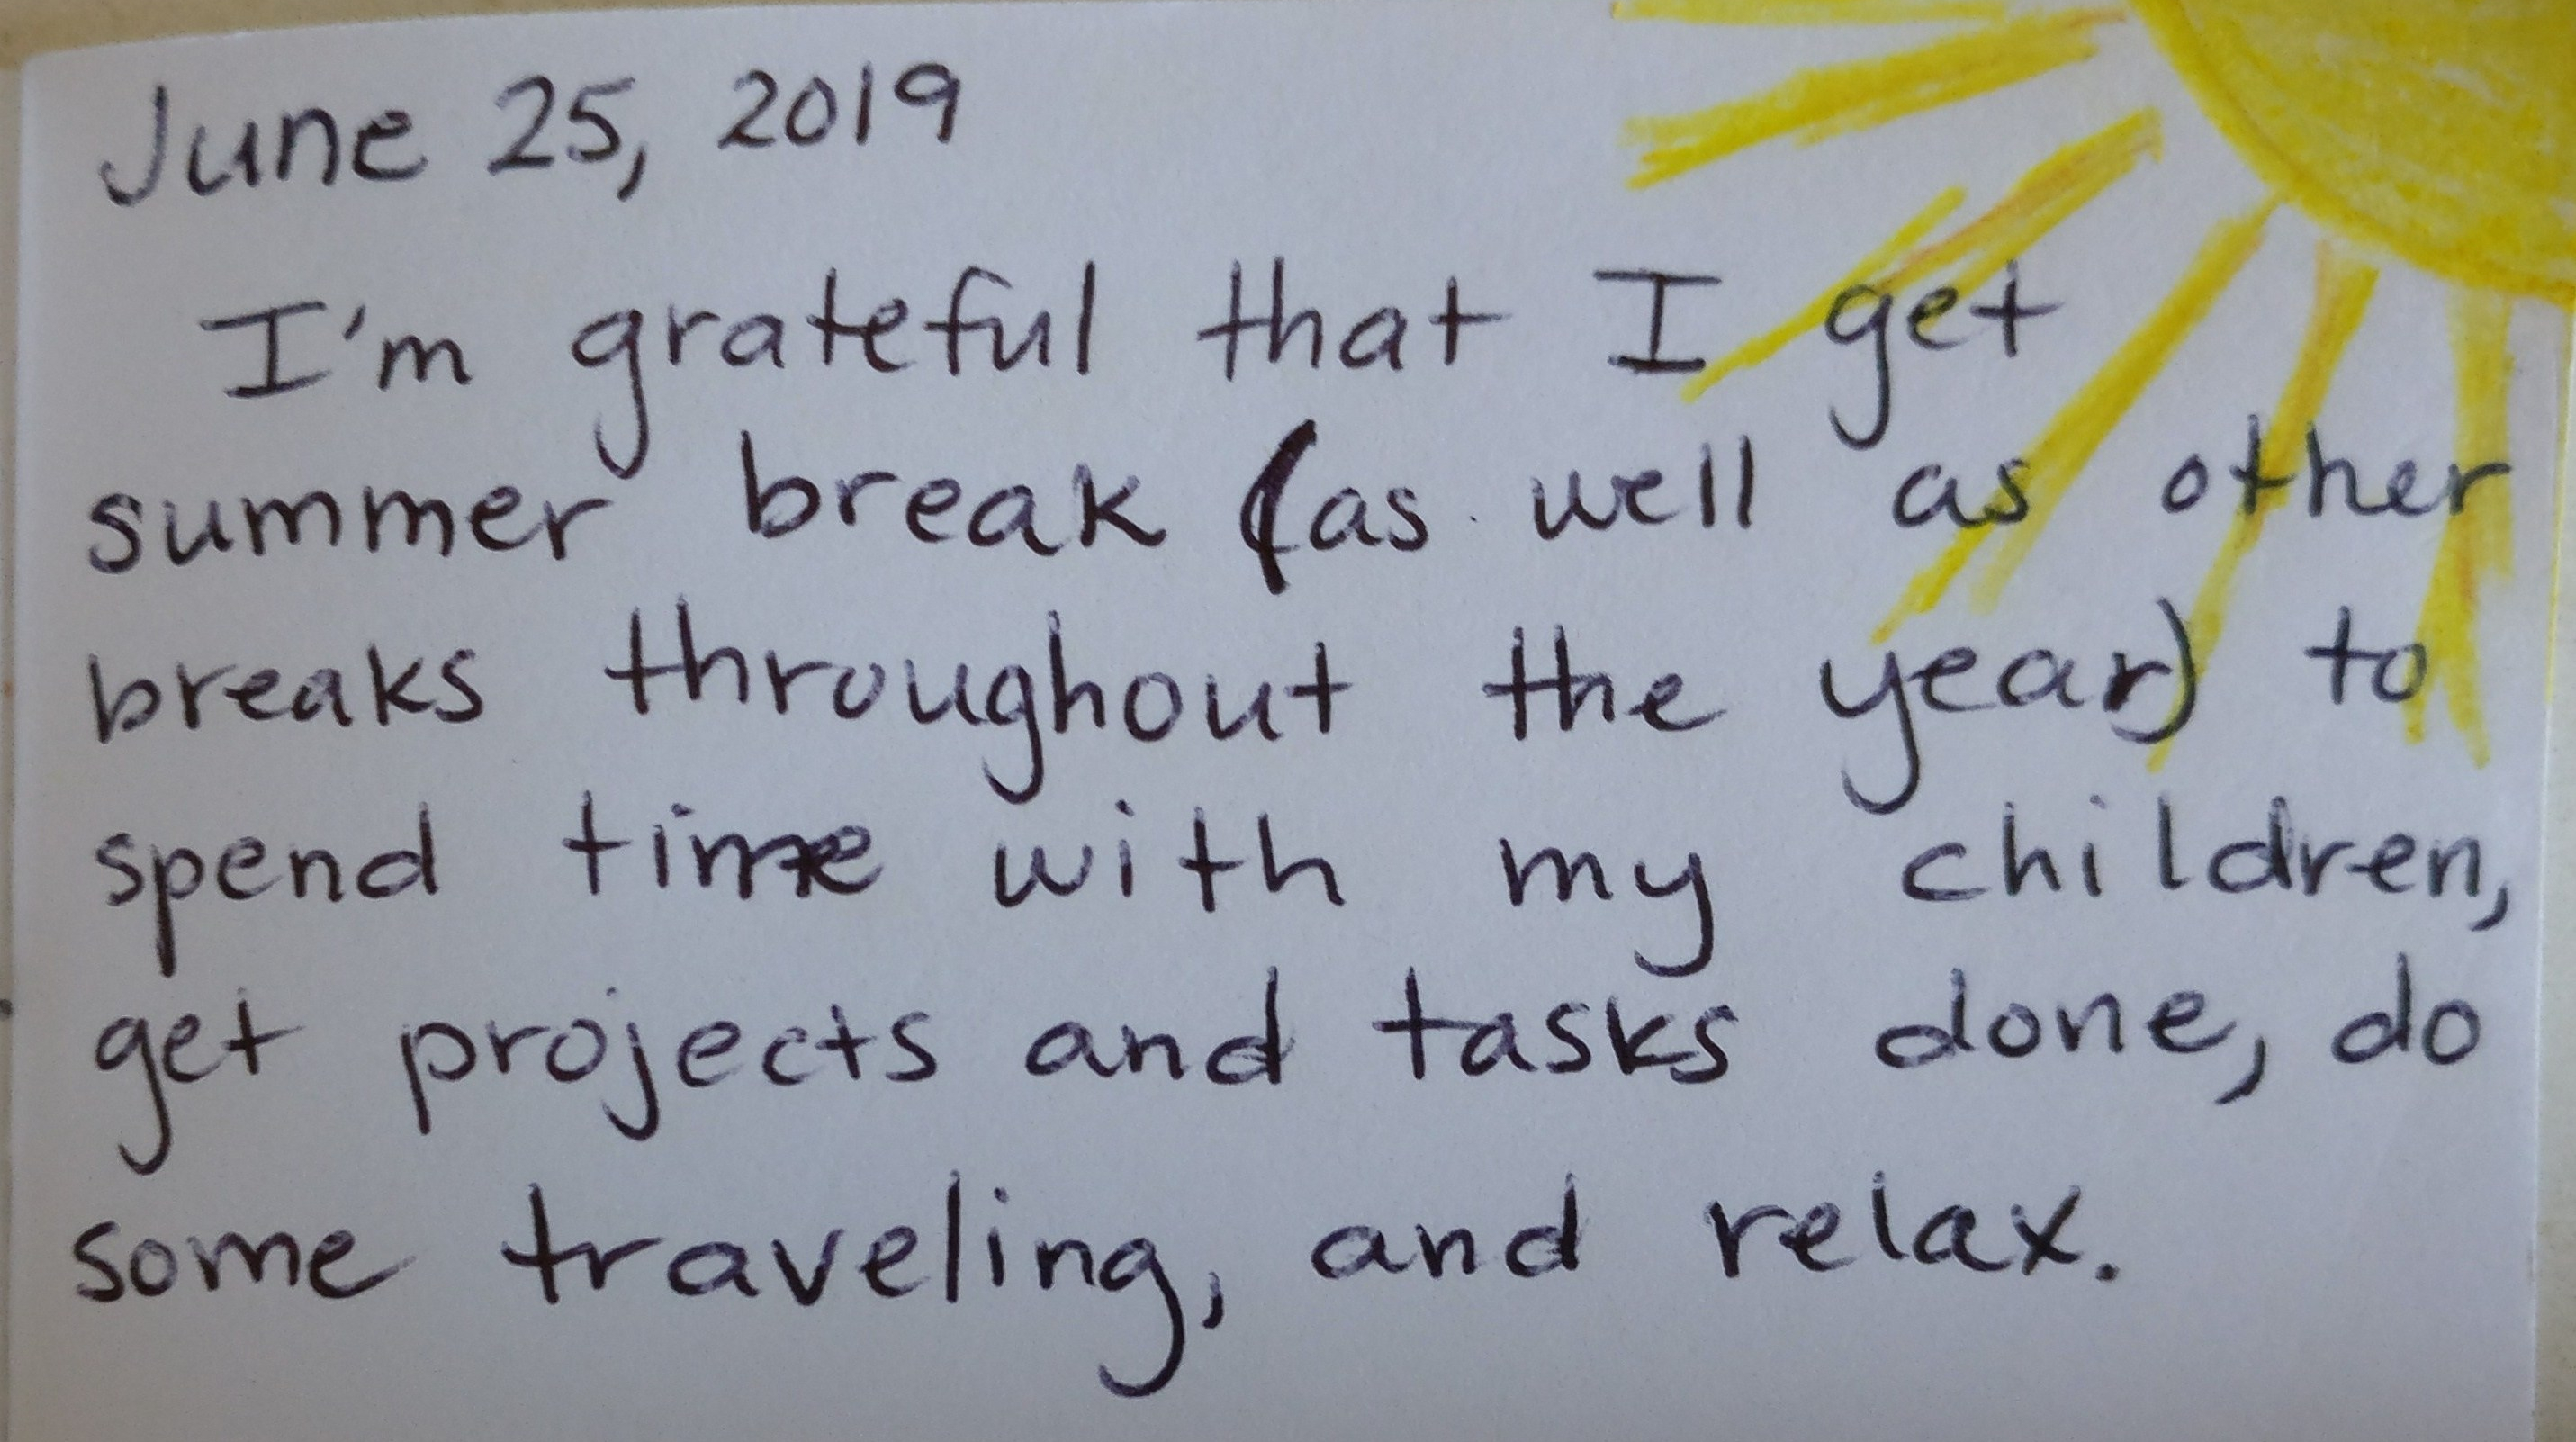 June 25, 2019
I'm grateful that I get
summer break (as well as other
breaks throughout the year) to
spend time with my children,
get projects and tasks done, do
some traveling, and relax.